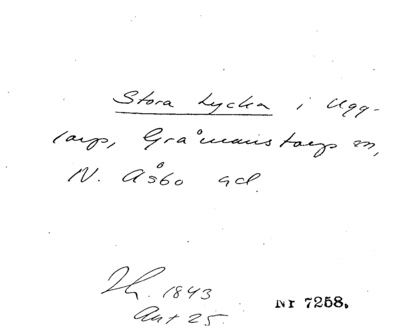 Stora Lycka i Ugg-
larp, Gråmanstorps sn,
N. Åsbo hd.
Th. 1843
Akt 25.
Nr 7258.